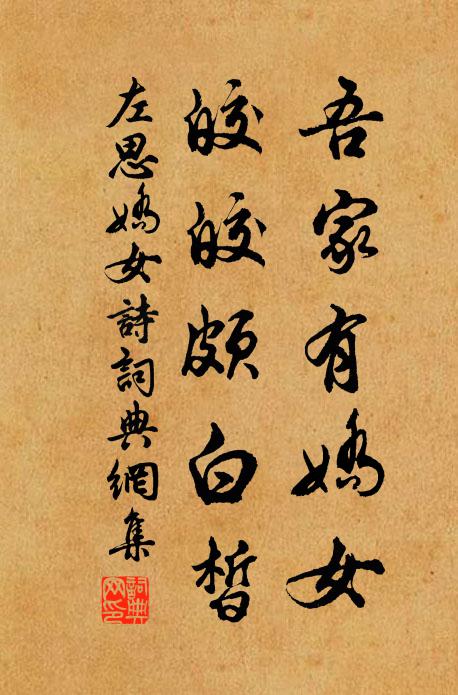 吾家有嬌女
皎皎頗白皙
左思嬌女詩詞典網集
詞典網印